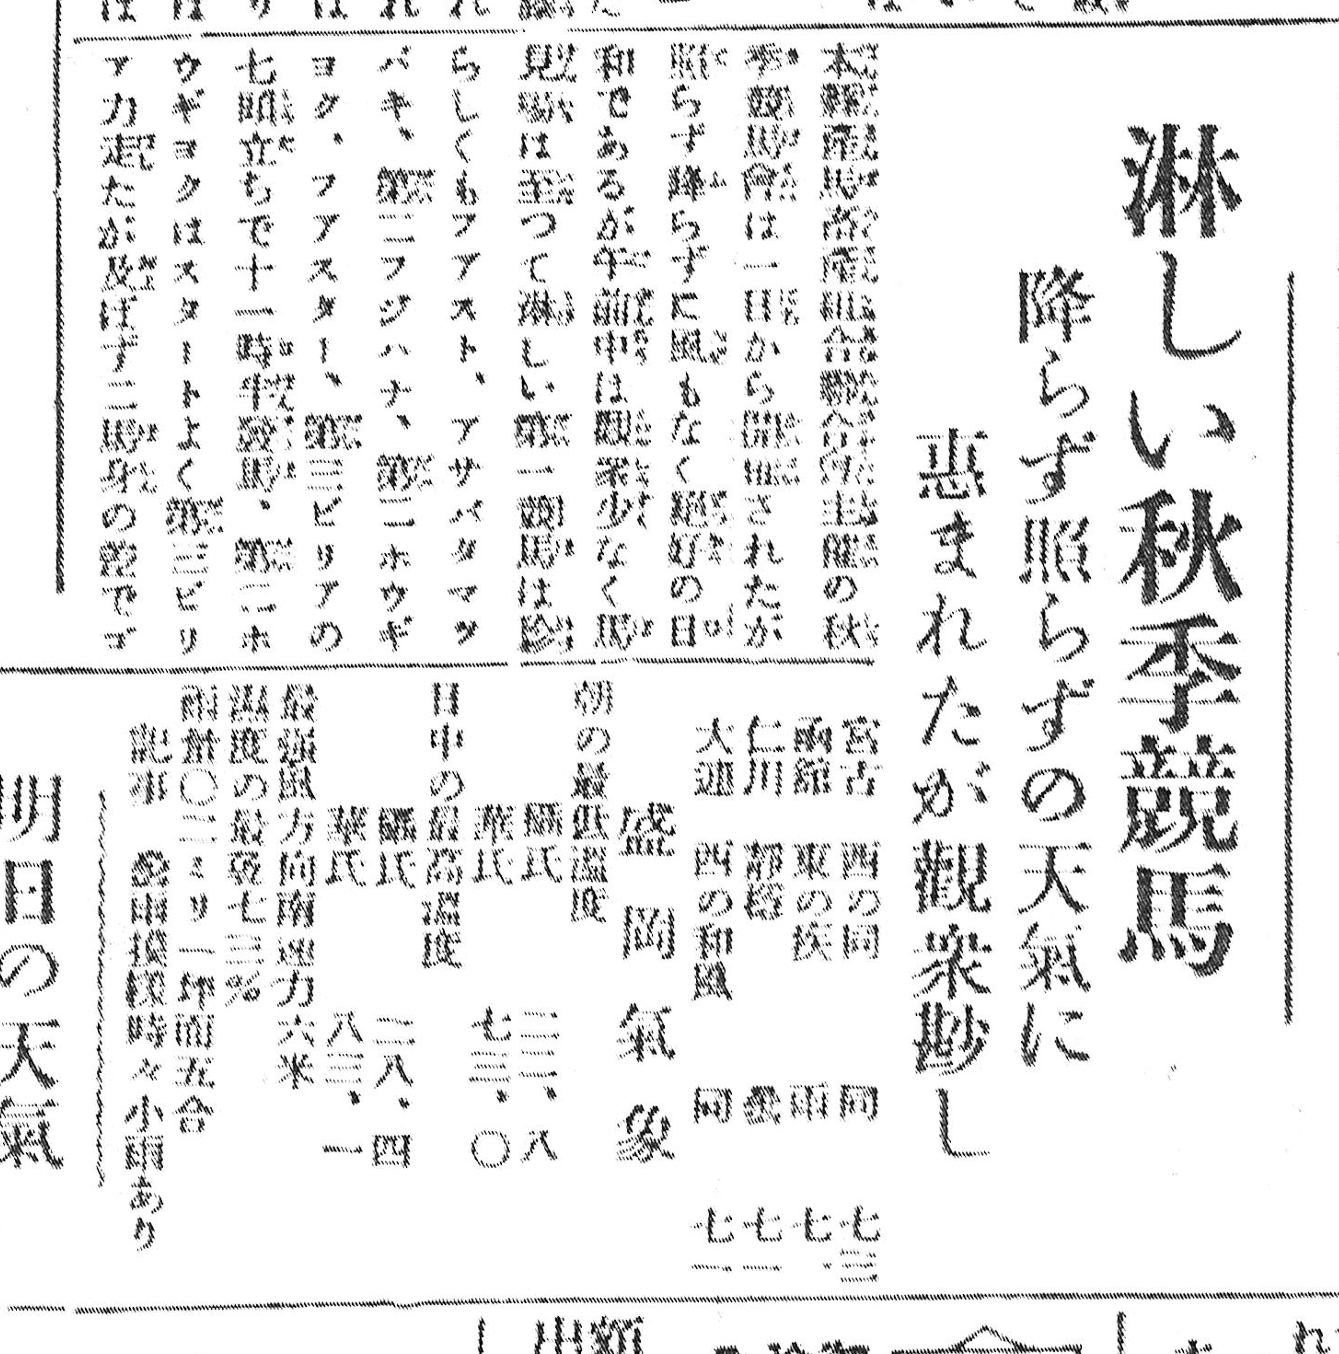 淋しい秋季競馬
降らず照らずの天氣に
惠まれたが觀衆尠し
本縣産馬畜産組合聯合会主催の秋
季競馬會は一日から開催されたが
照らず降らずに風もなく絕好の日
和であるが午前中は觀衆少なく馬
見場は至つて淋しい第一競馬は珍
らしくもフアスト、アサバタマツ
バキ、第二フジハナ、第二ホウギ
ヨク、フアスター、第三ビリアの
七頭立ちで十一時半發馬、第二ホ
ウギヨクはスタートよく第三ビリ
ア力走したが及ばず二馬身の差でゴ
宮古 西の同 同 七三
函館 東の疾 雨 七
仁川 靜穩 曇 七一
大連 西の和風 同 七一
盛岡氣象
朝の最低溫度
攝氏 二二、八
華氏 七三、〇
日中の最高溫度
攝氏 二八、四
華氏 八三、一
最强風力方向南速力六米
濕度の最乾七三%
雨量〇三ミリ一坪面五合
記事 曇雨模樣時々小雨あり
明日の天氣